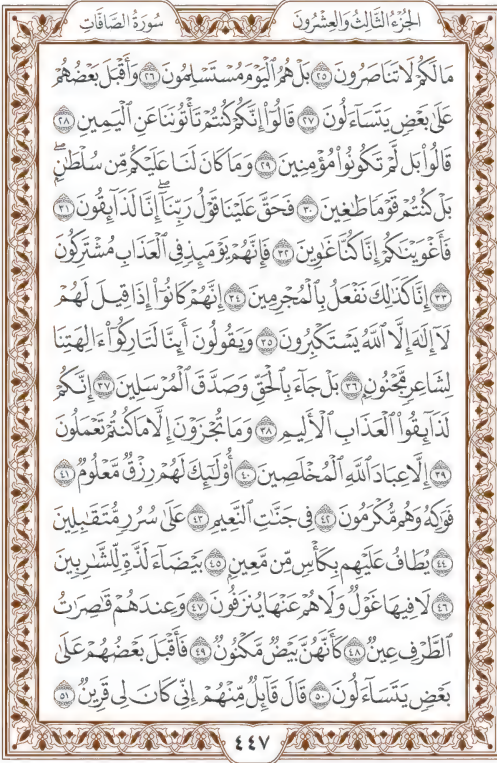 الجُزْءُ الثَّالِثُ وَالعِشْرُونَ سُورَةُ الصَّافَّاتِ
مَا لَكُمْ لَا تَنَاصَرُونَ ٢٥ بَلْ هُمُ ٱلْيَوْمَ مُسْتَسْلِمُونَ ٢٦ وَأَقْبَلَ بَعْضُهُمْ
عَلَىٰ بَعْضٍ يَتَسَآءَلُونَ ٢٧ قَالُوٓا۟ إِنَّكُمْ كُنتُمْ تَأْتُونَنَا عَنِ ٱلْيَمِينِ ٢٨
قَالُوا۟ بَل لَّمْ تَكُونُوا۟ مُؤْمِنِينَ ٢٩ وَمَا كَانَ لَنَا عَلَيْكُم مِّن سُلْطَٰنٍۭ ۖ
بَلْ كُنتُمْ قَوْمًا طَٰغِينَ ٣٠ فَحَقَّ عَلَيْنَا قَوْلُ رَبِّنَآ ۖ إِنَّا لَذَآئِقُونَ ٣١
فَأَغْوَيْنَٰكُمْ إِنَّا كُنَّا غَٰوِينَ ٣٢ فَإِنَّهُمْ يَوْمَئِذٍ فِى ٱلْعَذَابِ مُشْتَرِكُونَ
٣٣ إِنَّا كَذَٰلِكَ نَفْعَلُ بِٱلْمُجْرِمِينَ ٣٤ إِنَّهُمْ كَانُوٓا۟ إِذَا قِيلَ لَهُمْ
لَآ إِلَٰهَ إِلَّا ٱللَّهُ يَسْتَكْبِرُونَ ٣٥ وَيَقُولُونَ أَئِنَّا لَتَارِكُوٓا۟ ءَالِهَتِنَا
لِشَاعِرٍ مَّجْنُونٍۭ ٣٦ بَلْ جَآءَ بِٱلْحَقِّ وَصَدَّقَ ٱلْمُرْسَلِينَ ٣٧ إِنَّكُمْ
لَذَآئِقُوا۟ ٱلْعَذَابِ ٱلْأَلِيمِ ٣٨ وَمَا تُجْزَوْنَ إِلَّا مَا كُنتُمْ تَعْمَلُونَ
٣٩ إِلَّا عِبَادَ ٱللَّهِ ٱلْمُخْلَصِينَ ٤٠ أُو۟لَٰٓئِكَ لَهُمْ رِزْقٌ مَّعْلُومٌ ٤١
فَوَٰكِهُ ۖ وَهُم مُّكْرَمُونَ ٤٢ فِى جَنَّٰتِ ٱلنَّعِيمِ ٤٣ عَلَىٰ سُرُرٍ مُّتَقَٰبِلِينَ
٤٤ يُطَافُ عَلَيْهِم بِكَأْسٍ مِّن مَّعِينٍۭ ٤٥ بَيْضَآءَ لَذَّةٍ لِّلشَّٰرِبِينَ
٤٦ لَا فِيهَا غَوْلٌ وَلَا هُمْ عَنْهَا يُنزَفُونَ ٤٧ وَعِندَهُمْ قَٰصِرَٰتُ
ٱلطَّرْفِ عِينٌ ٤٨ كَأَنَّهُنَّ بَيْضٌ مَّكْنُونٌ ٤٩ فَأَقْبَلَ بَعْضُهُمْ عَلَىٰ
بَعْضٍ يَتَسَآءَلُونَ ٥٠ قَالَ قَآئِلٌ مِّنْهُمْ إِنِّى كَانَ لِى قَرِينٌ ٥١
٤٤٧